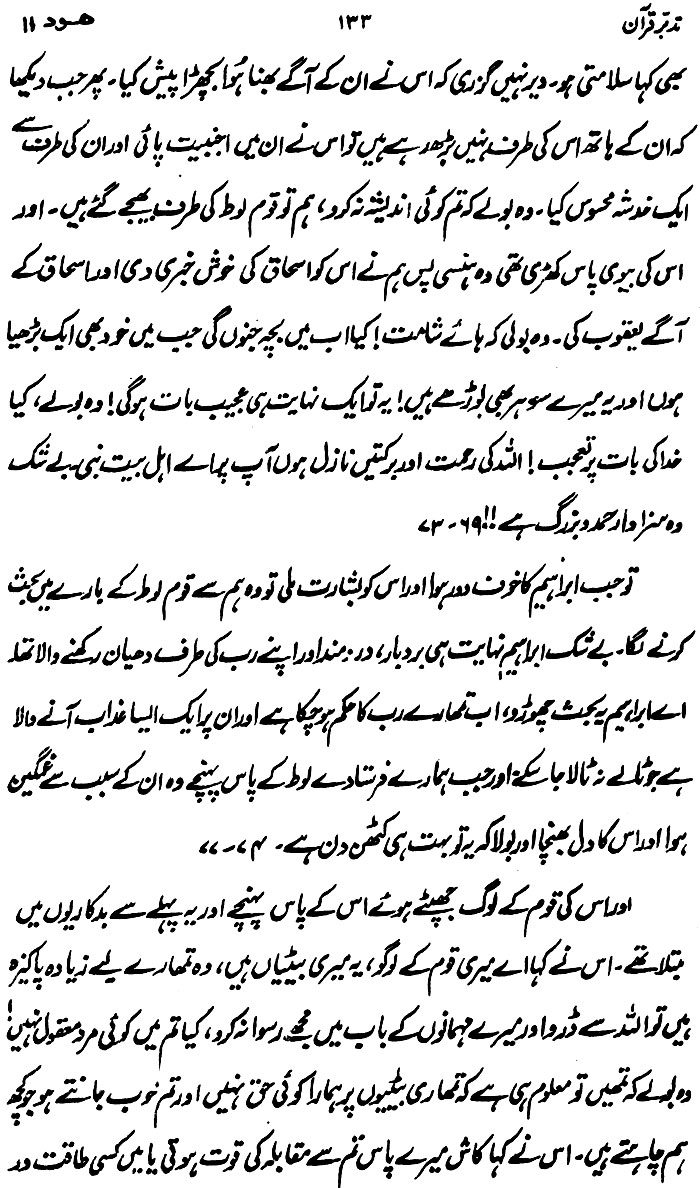 تدبّر قرآن ۱۳۳ ھود ۱۱
بھی کہا سلامتی ہو۔ دیر نہیں گزری کہ اس نے ان کے آگے بھنا ہُوا بچھڑا پیش کیا۔ پھر جب دیکھا
کہ ان کے ہاتھ اس کی طرف نہیں بڑھ رہے ہیں تو اس نے ان میں اجنبیت پائی اور ان کی طرف سے
ایک خدشہ محسوس کیا۔ وہ بولے کہ تم کوئی اندیشہ نہ کرو، ہم تو قوم لوط کی طرف بھیجے گئے ہیں۔ اور
اس کی بیوی پاس کھڑی تھی وہ ہنسی پس ہم نے اس کو اسحاق کی خوش خبری دی اور اسحاق کے
آگے یعقوب کی۔ وہ بولی کہ ہائے شامت! کیا اب میں بچہ جنوں گی جب میں خود بھی ایک بڑھیا
ہوں اور یہ میرے سوہر بھی بوڑھے ہیں! یہ تو ایک نہایت ہی عجیب بات ہوگی! وہ بولے، کیا
خدا کی بات پر تعجب! اللہ کی رحمت اور برکتیں نازل ہوں آپ پر اے اہل بیت نبی۔ بے شک
وہ سزاوار حمد و بزرگ ہے!! ۶۹-۷۳
تو جب ابراہیم کا خوف دور ہوا اور اس کو بشارت ملی تو وہ ہم سے قوم لوط کے بارے میں بحث
کرنے لگا۔ بے شک ابراہیم نہایت ہی بردبار، دردمند اور اپنے رب کی طرف دھیان رکھنے والا تھا۔
اے ابراہیم یہ بحث چھوڑو، اب تمھارے رب کا حکم ہو چکا ہے اور ان پر ایک ایسا عذاب آنے والا
ہے جو ٹالے نہ ٹالا جا سکے اور جب ہمارے فرستادے لوط کے پاس پہنچے وہ ان کے سبب سے غمگین
ہوا اور اس کا دل بھنچا اور بولا کہ یہ تو بہت ہی کٹھن دن ہے۔ ۷۴-۷۷
اور اس کی قوم کے لوگ جھپٹے ہوئے اس کے پاس پہنچے اور یہ پہلے سے بدکاریوں میں
مبتلا تھے۔ اس نے کہا اے میری قوم کے لوگو، یہ میری بیٹیاں ہیں، وہ تمھارے لیے زیادہ پاکیزہ
ہیں تو اللہ سے ڈرو اور میرے مہمانوں کے باب میں مجھے رسوا نہ کرو، کیا تم میں کوئی مرد معقول نہیں!
وہ بولے کہ تمھیں تو معلوم ہی ہے کہ تمھاری بیٹیوں پر ہمارا کوئی حق نہیں اور تم خوب جانتے ہو جو کچھ
ہم چاہتے ہیں۔ اس نے کہا کاش میرے پاس تم سے مقابلہ کی قوت ہوتی یا میں کسی طاقت ور